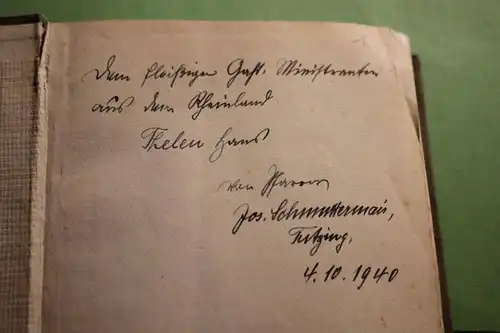 Dem fleißigen Gast-Ministranten
aus dem Rheinland
Thelen Hans
von Pfarrer
Jos. Schmuttermair,
Tutzing,
4.10.1940